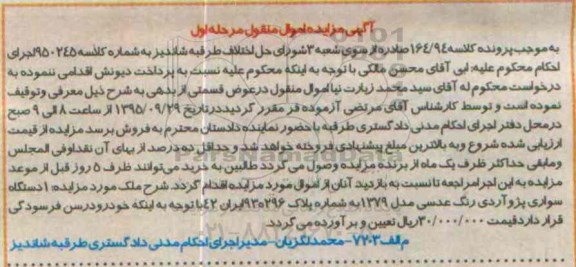 آگهی مزایده اموال منقول مرحله اول
به موجب پرونده کلاسه ۱۶۴/۹۴ صادره از سوی شعبه ۳ شورای حل اختلاف طرقبه شاندیز به شماره کلاسه ۹۵۰۲۴۵ اجرای
احکام محکوم علیه: ابی آقای محسن مالکی با توجه به اینکه محکوم علیه نسبت به پرداخت دیونش اقدامی ننموده به
درخواست محکوم له آقای سید محمد زیارت نیا اموال منقول در عوض قسمتی از بدهی به شرح ذیل معرفی و توقیف
نموده است و توسط کارشناس آقای مرتضی آزموده فر مقرر گردید در تاریخ ۱۳۹۵/۰۹/۲۹ از ساعت ۸ الی ۹ صبح
در محل دفتر اجرای احکام مدنی دادگستری طرقبه با حضور نماینده دادستان محترم به فروش برسد مزایده از قیمت
ارزیابی شده شروع و به بالاترین مبلغ پیشنهادی فروخته خواهد شد و حداقل ده درصد از بهای آن نقدا و فی المجلس
و مابقی حداکثر ظرف یک ماه از برنده مزایده وصول می گردد طالبین به خرید می توانند ظرف ۵ روز قبل از موعد
مزایده به این اجرا مراجعه تا نسبت به بازدید آنان از اموال مورد مزایده اقدام گردد. شرح ملک مورد مزایده: ۱ دستگاه
سواری پژو آردی رنگ عدسی مدل ۱۳۷۹ به شماره پلاک ۲۹۶ه۹۳ ایران ۴۲ با توجه به اینکه خودرو در سن فرسودگی
قرار دارد قیمت ۳۰/۰۰۰/۰۰۰ ریال تعیین و برآورده می گردد.
م الف ۷۲۰۳ - محمد لگزیان - مدیر اجرای احکام مدنی دادگستری طرقبه شاندیز